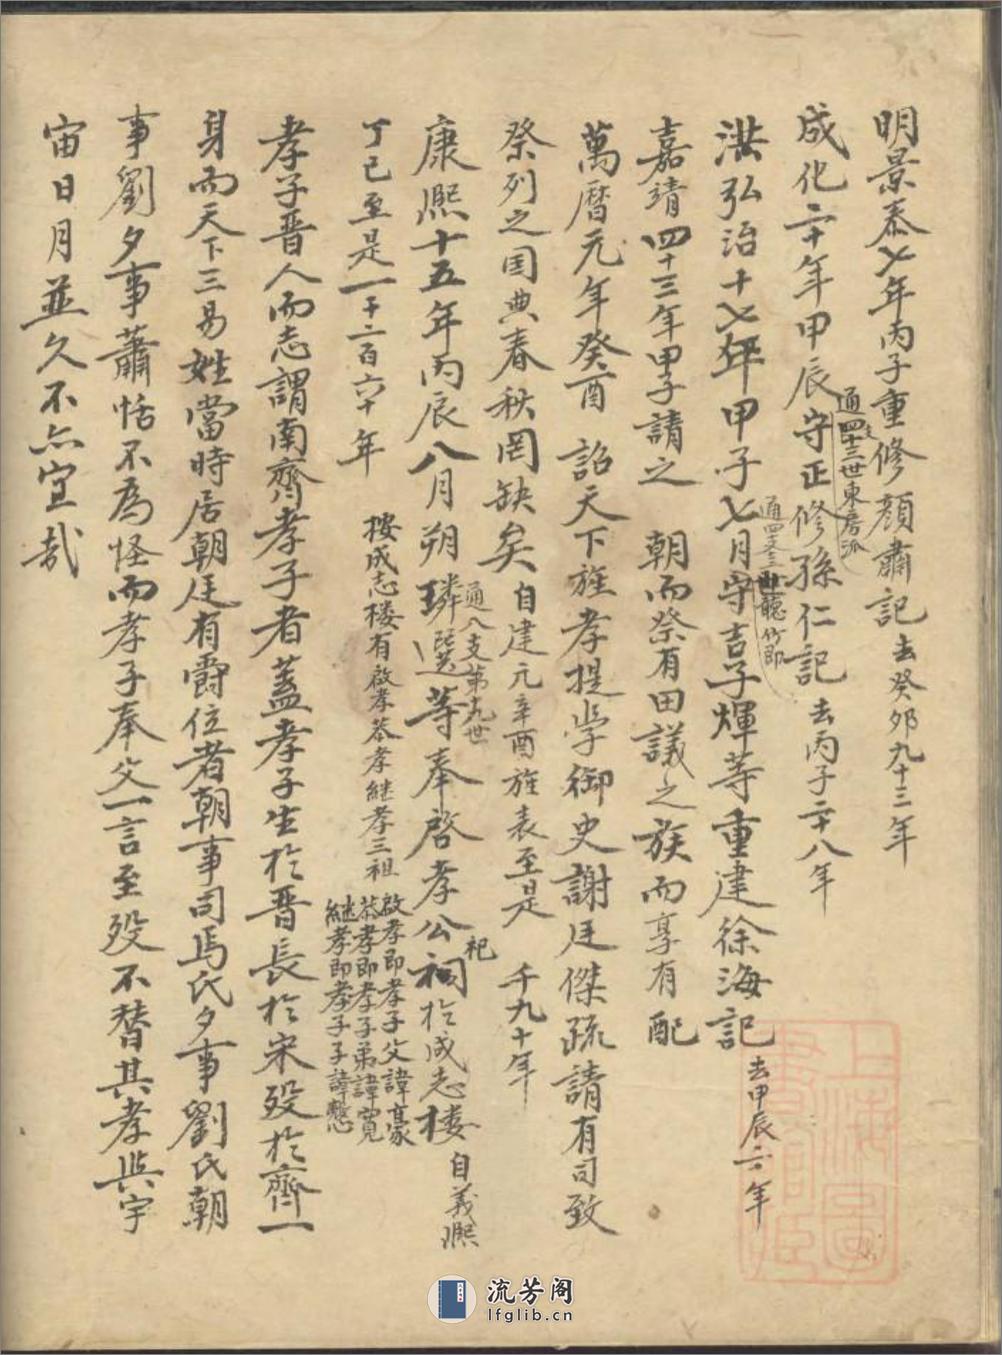 明景泰七年丙子重修顏肅記去癸夘九十三年
通四十三世東房派
成化二十年甲辰守正修孫仁記去丙子二十八年
通四支三世聽竹即
洪弘治十七年甲子七月守吉子煇等重建徐海記去甲辰二十年
嘉靖四十三年甲子請之 朝而祭有田議之族而享有配
萬曆元年癸酉 詔天下旌孝提學御史謝廷傑疏請有司致
祭列之国典春秋罔缺矣自建元辛酉旌表至是 千九十年
通八支第九世 祀
康熙十五年丙辰八月朔璘選等奉啓孝公祠於成志樓自義熙
丁巳至是一千二百六十年 按成志樓有啟孝恭孝継孝三祖
啟孝即孝子父諱豪
恭孝即孝子弟諱寬
継孝即孝子子諱慜
孝子晉人而志謂南齊孝子者蓋孝子生於晉長於宋殁於齊一
身而天下三易姓當時居朝廷有爵位者朝事司馬氏夕事劉氏朝
事劉夕事蕭恬不為怪而孝子奉父一言至殁不替其孝與宇
宙日月並久不亦宜哉
上海圖書館藏
流芳阁
lfglib.cn